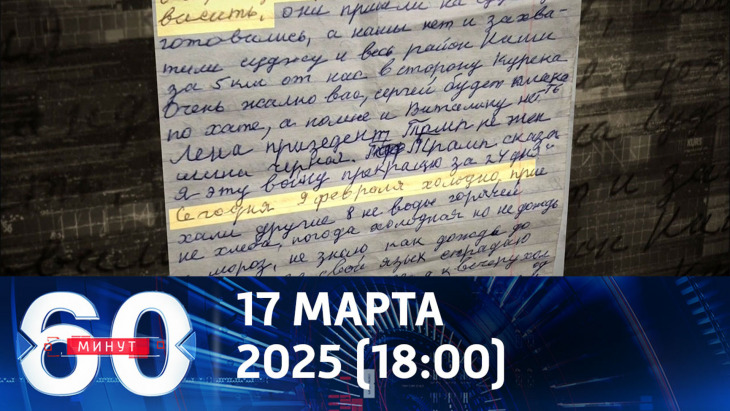 васить, они пришли на су
готовились, а наши нет и захва-
тили суджу и весь район Наши
за 5 км от нас в сторону Курска
Очень жалко вас, Сергей будет
по хате, а по мне и Виталику нет
Лена президент Трамп не жен
щина черная. Трамп сказа
я эту войну прекращу за 24 дня"
Сегодня 9 февраля холодно, прие
хали другие 8 не воды горячей
не хлеба, погода холодная но не дождь
мороз, не знаю как дождь до
свой язык
60
МИНУТ
17 МАРТА
2025 (18:00)